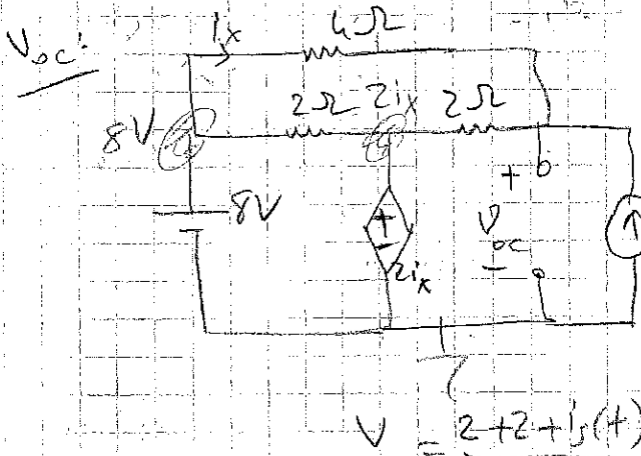 Voc:
ix 4Ω
2Ω 2ix 2Ω
8V
8V
+
+
-
Voc
-
2ix
V = 2+2+is(t)